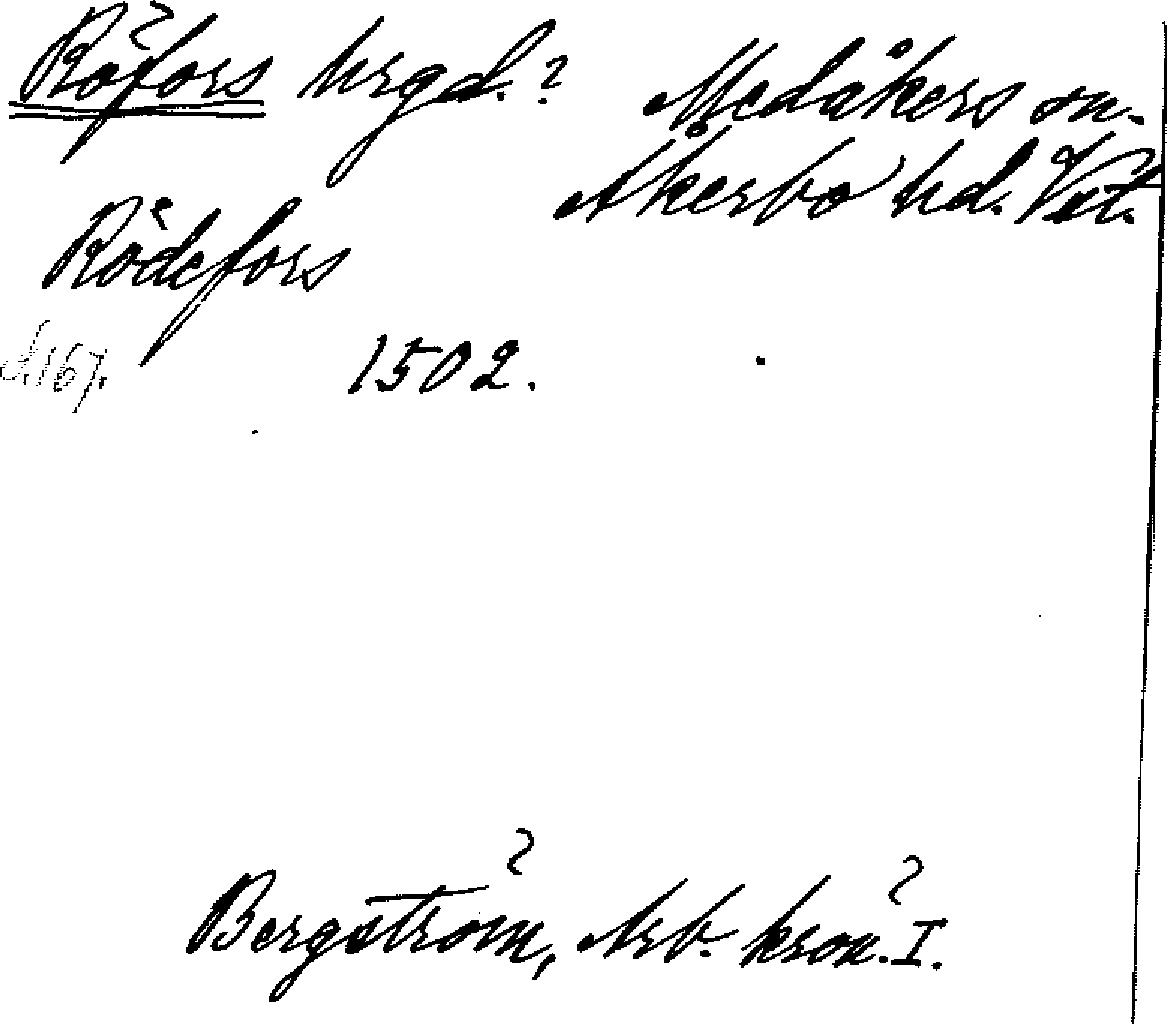 Röfors hrgd.? Medåkers sn.
Åkerbo hd. Vstl.
Rödefors
d. 167. 1502.
Bergström, Arb. kron. I.